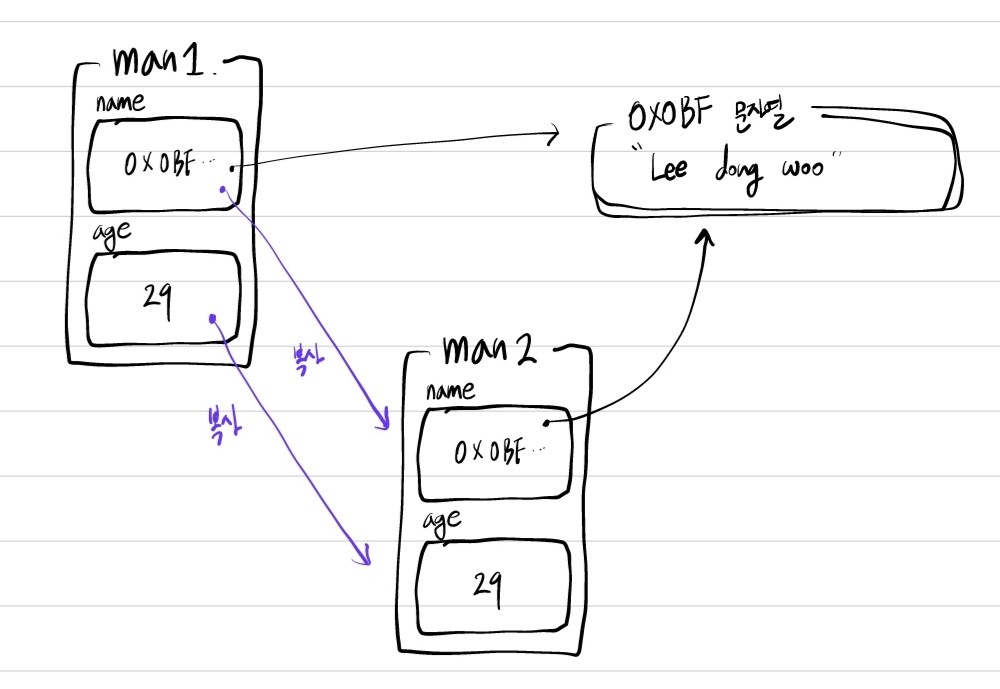 man1.
name
0X0BF...
age
29
복사
복사
0X0BF 문자열
"Lee dong woo"
man2
name
0X0BF...
age
29